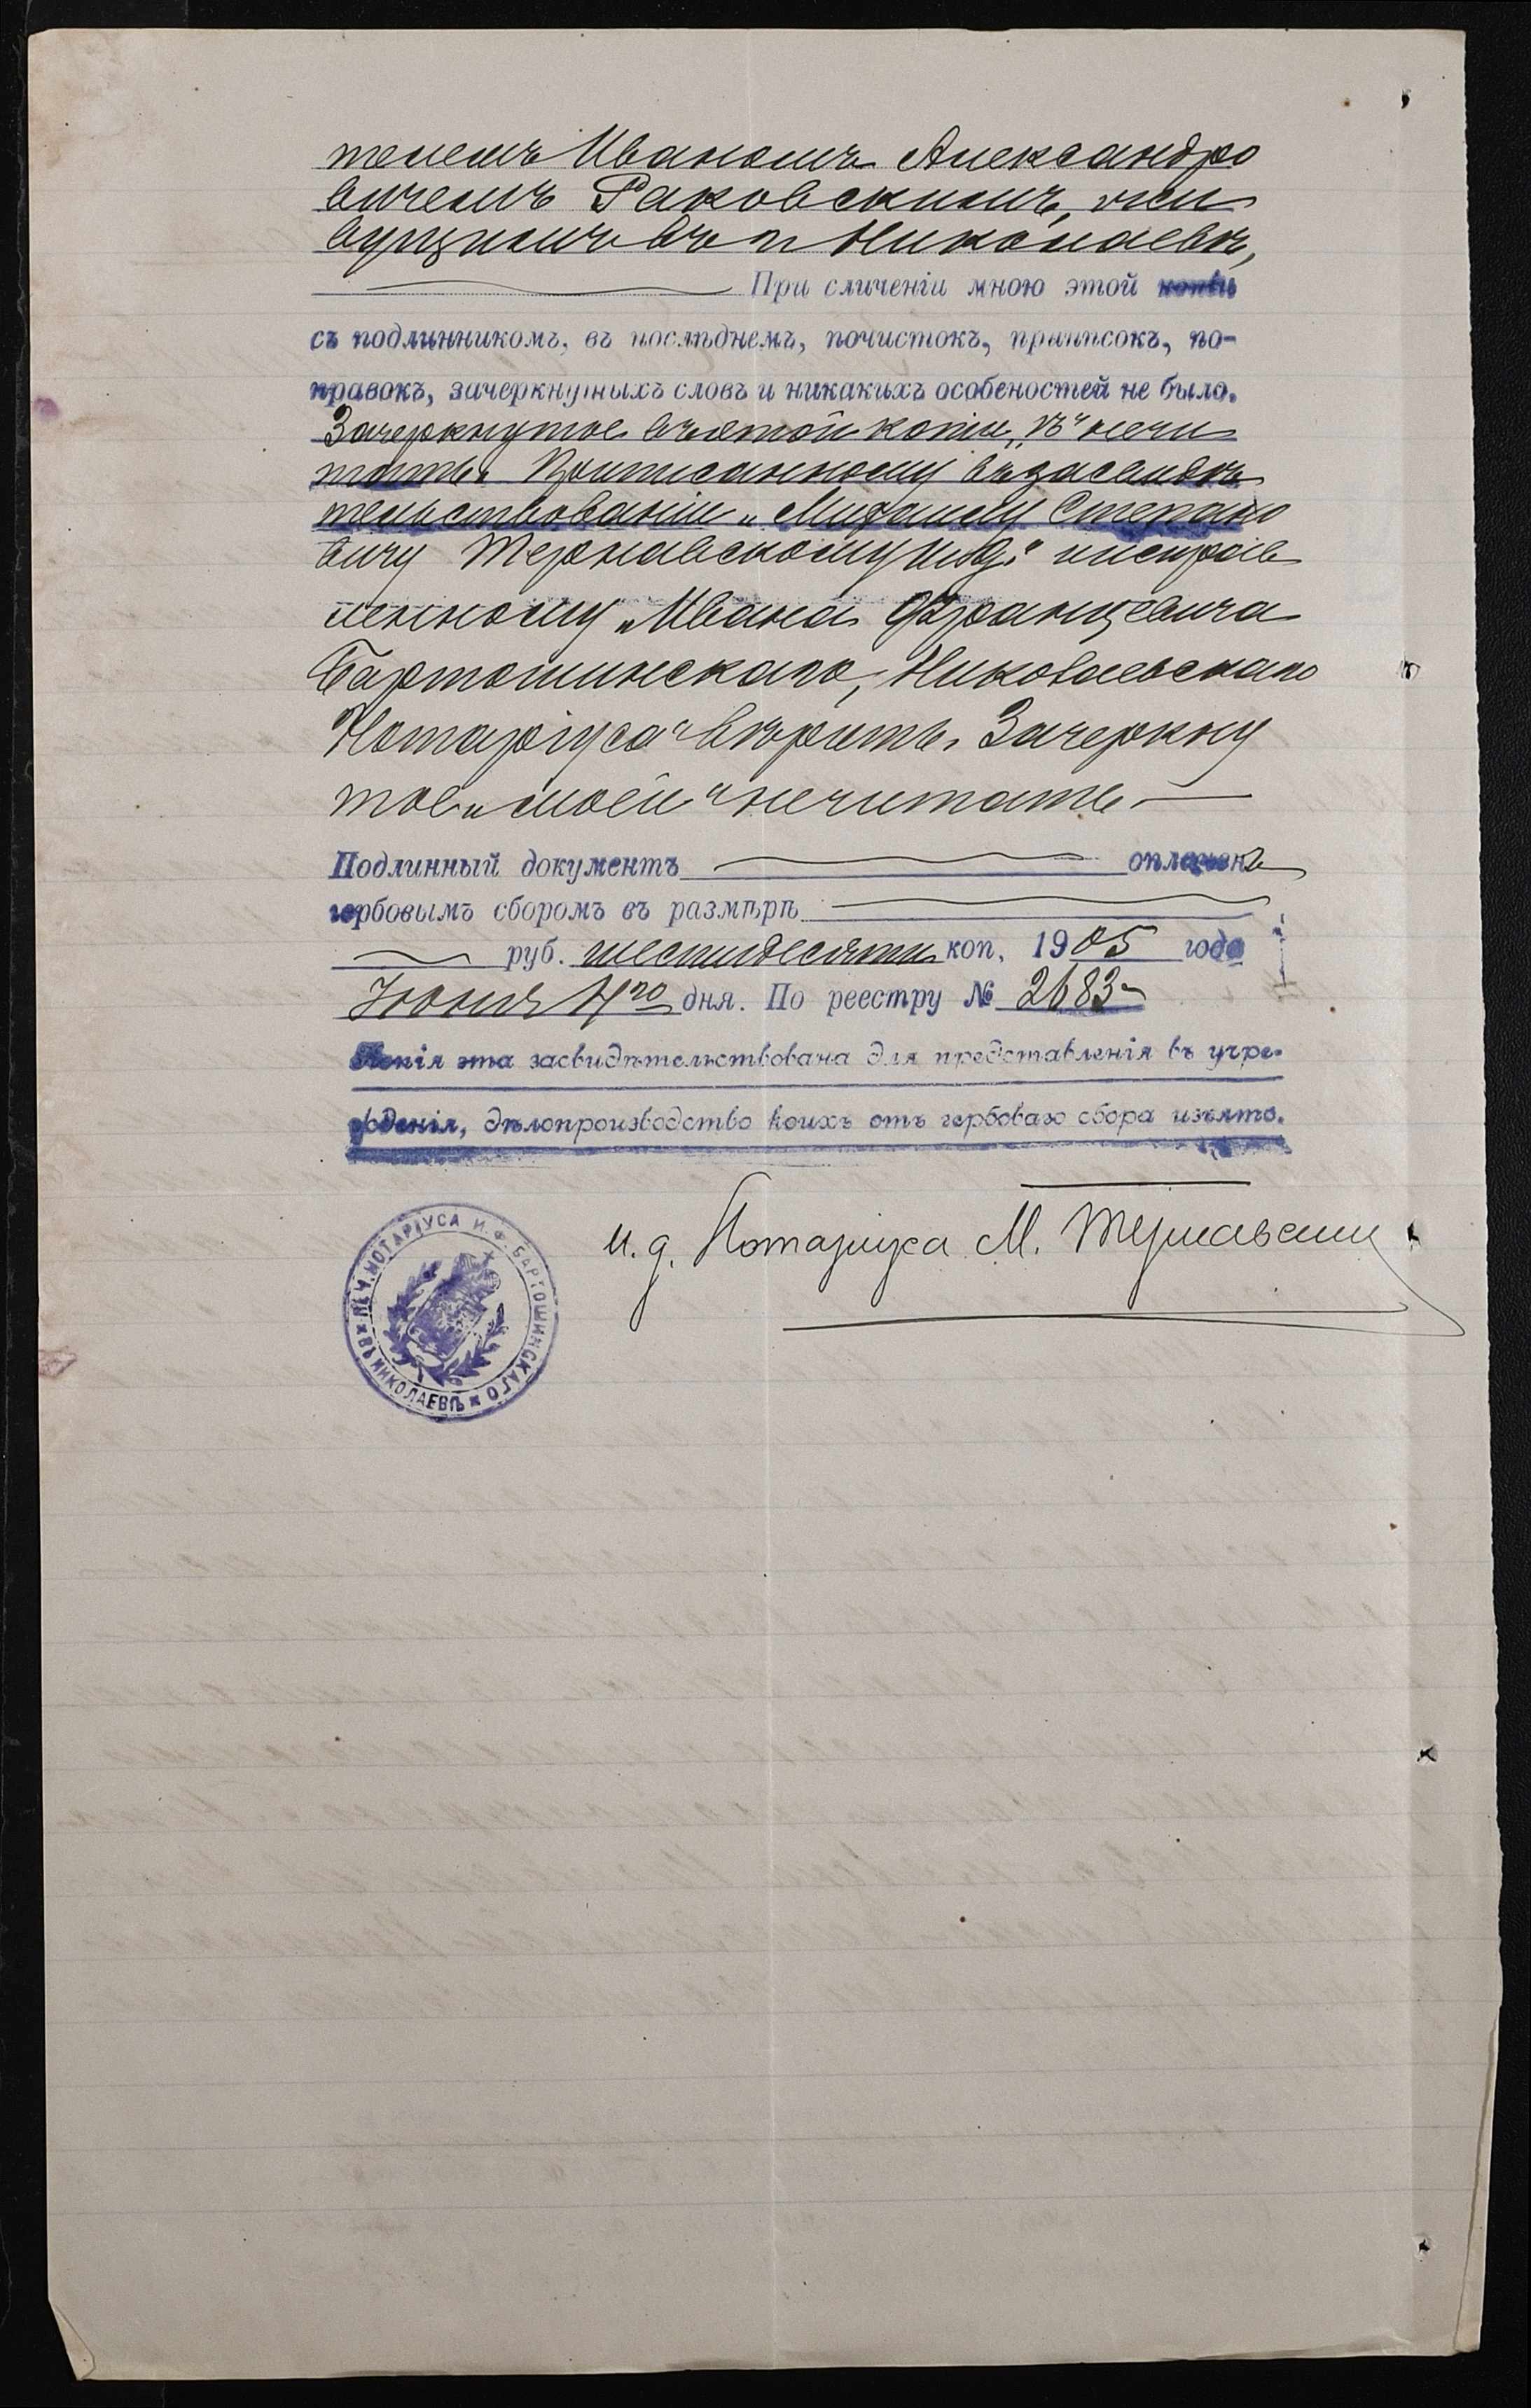 телемъ Иваномъ Александро
вичемъ Раковскимъ, жи
вущимъ въ г. Николаевѣ,
При сличеніи мною этой копіи
съ подлинникомъ, въ послѣднемъ, почистокъ, приписокъ, по-
правокъ, зачеркнутыхъ словъ и никакихъ особеностей не было.
Зачеркнутое въ этой копіи „ъ" не чи
тать. Приписанному въ засвидѣ
тельствованіи „Михаилу Степано
вичу Тернавскому и. д." исправ
ленному „Ивана Францевича
Бартошинскаго, Николаевскаго
Нотаріуса" вѣрить. Зачеркну
тое „моей" не читать.
Подлинный документъ оплаченъ
гербовымъ сборомъ въ размѣрѣ
руб. шестидесяти коп, 1905 года
Іюня 4го дня. По реестру № 2683
Копія эта засвидѣтельствована для представленія въ учре-
жденія, дѣлопроизводство коихъ отъ гербоваго сбора изъято.
и. д. Нотаріуса М. Тернавскій
ПЕЧ. НОТАРІУСА И. Ф. БАРТОШИНСКАГО
ВЪ НИКОЛАЕВѢ